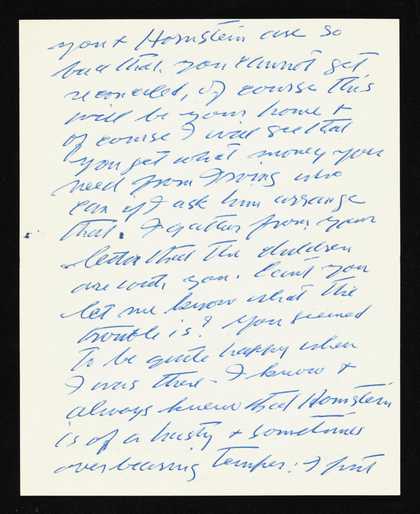 you & Hornstein are so
bad that you cannot get
reconciled, of course this
will be your home &
of course I will see that
you get what money you
need from Irving who
can if I ask him arrange
that. I gather from your
letter that the children
are with you. Can't you
let me know what the
trouble is? You seemed
to be quite happy when
I was there - I know &
always knew that Hornstein
is of a hasty & sometimes
overbearing temper. I